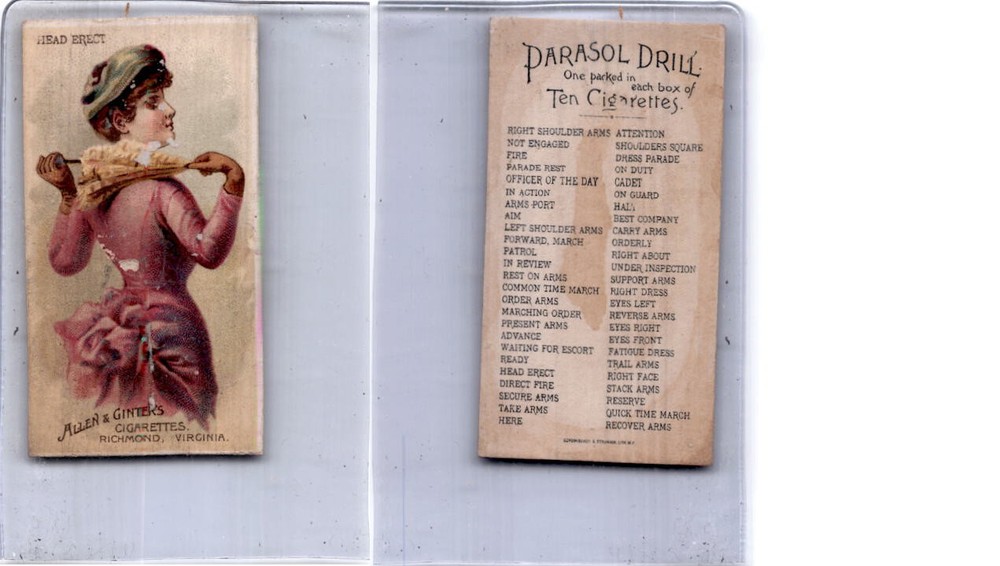 HEAD ERECT
ALLEN & GINTER'S
CIGARETTES.
RICHMOND, VIRGINIA.
PARASOL DRILL.
One packed in
each box of
Ten Cigarettes.
RIGHT SHOULDER ARMS
NOT ENGAGED
FIRE
PARADE REST
OFFICER OF THE DAY
IN ACTION
ARMS PORT
AIM
LEFT SHOULDER ARMS
FORWARD, MARCH
PATROL
IN REVIEW
REST ON ARMS
COMMON TIME MARCH
ORDER ARMS
MARCHING ORDER
PRESENT ARMS
ADVANCE
WAITING FOR ESCORT
READY
HEAD ERECT
DIRECT FIRE
SECURE ARMS
TAKE ARMS
HERE
ATTENTION
SHOULDERS SQUARE
DRESS PARADE
ON DUTY
CADET
ON GUARD
HALT
BEST COMPANY
CARRY ARMS
ORDERLY
RIGHT ABOUT
UNDER INSPECTION
SUPPORT ARMS
RIGHT DRESS
EYES LEFT
REVERSE ARMS
EYES RIGHT
EYES FRONT
FATIGUE DRESS
TRAIL ARMS
RIGHT FACE
STACK ARMS
RESERVE
QUICK TIME MARCH
RECOVER ARMS